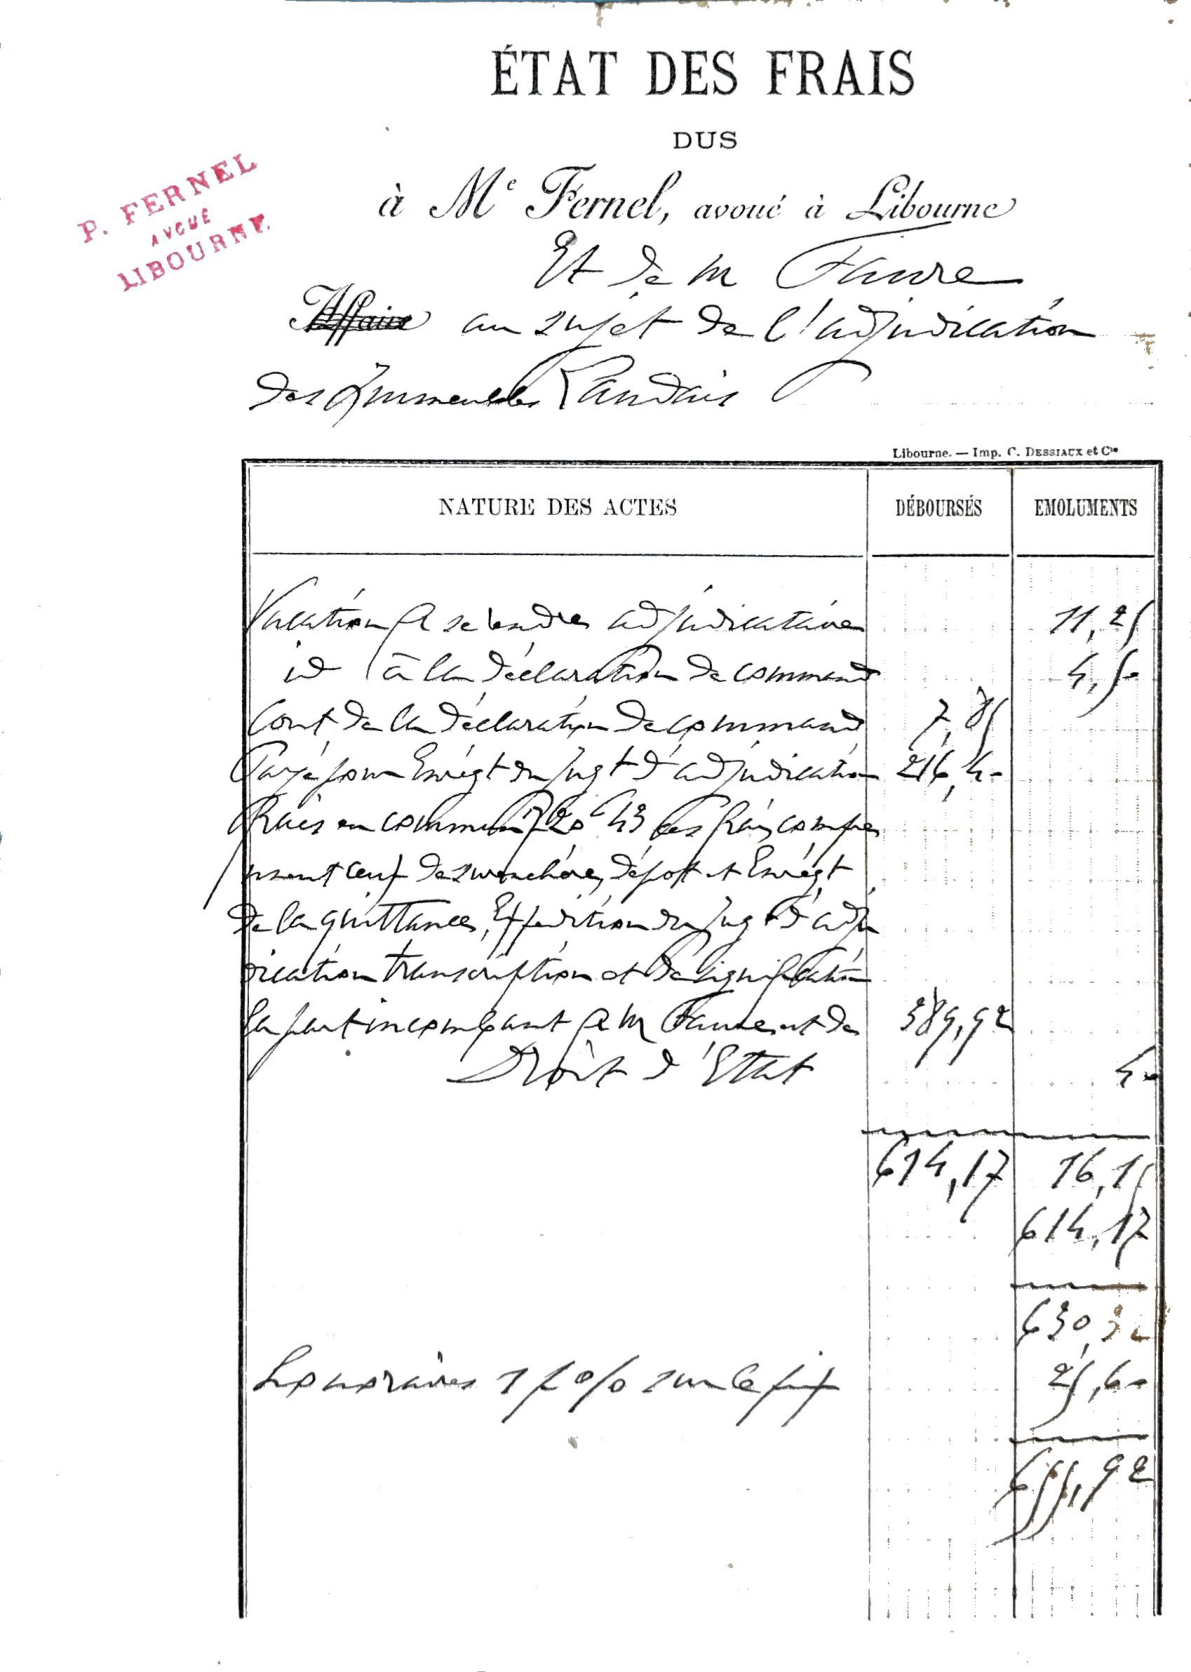 ÉTAT DES FRAIS
DUS
à Me Fernel, avoué à Libourne
P. FERNEL
AVOUÉ
LIBOURNE.
Et de M Faure
Affaire au sujet de l'adjudication
des Immeubles Landais
Libourne. — Imp. C. DESSIAUX et Cie
NATURE DES ACTES DÉBOURSÉS EMOLUMENTS
Vacation a se rendre adjudicataire 11,25
id à la déclaration de command 4,50
Cout de la déclaration de command 7,85
Payé pour Enregt du jugt d'adjudication 216,40
Frais en commun 720f43 ces frais compre
nnent ceux de surenchère, dépôt et Enregt
de la quittance, Expédition du jugt d'adju
dication transcription et de signification
la part incombant a M Faure est de 389,92
Droit d'Etat 40
614,17 16,15
614,17
630,32
Honoraires 1f% sur le prix 25,60
655,92